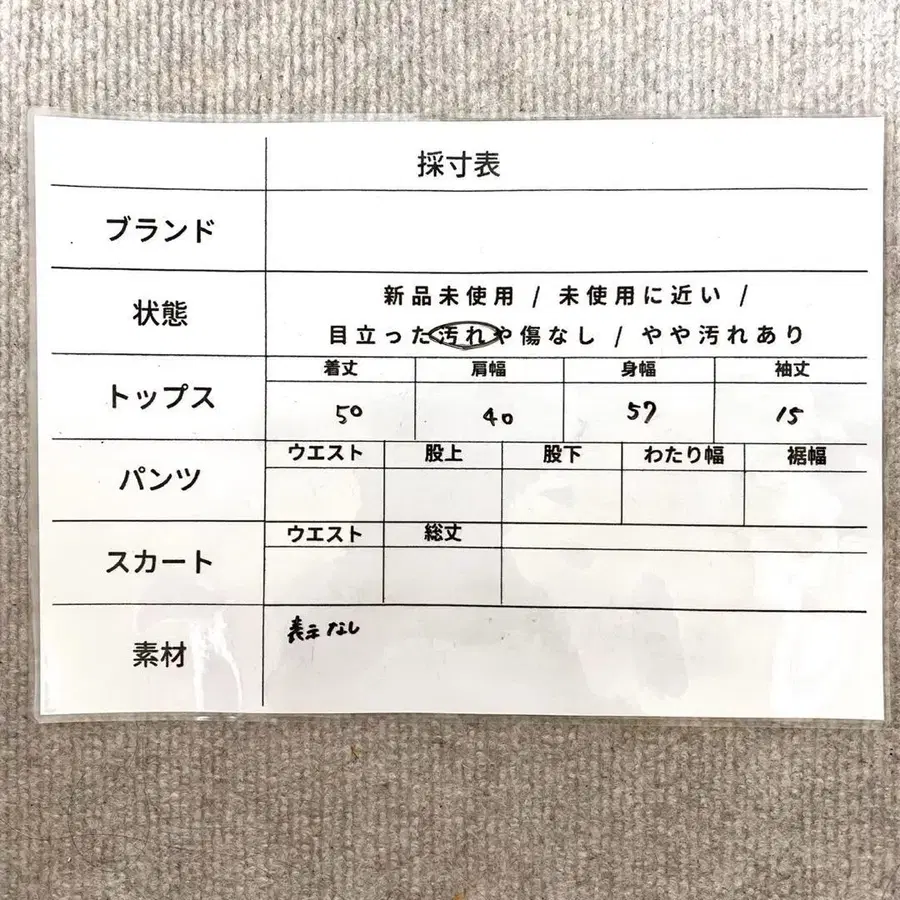 採寸表
ブランド
状態
新品未使用 / 未使用に近い /
目立った汚れや傷なし / やや汚れあり
トップス
着丈 肩幅 身幅 袖丈
50 40 57 15
パンツ
ウエスト 股上 股下 わたり幅 裾幅
スカート
ウエスト 総丈
素材
表示なし